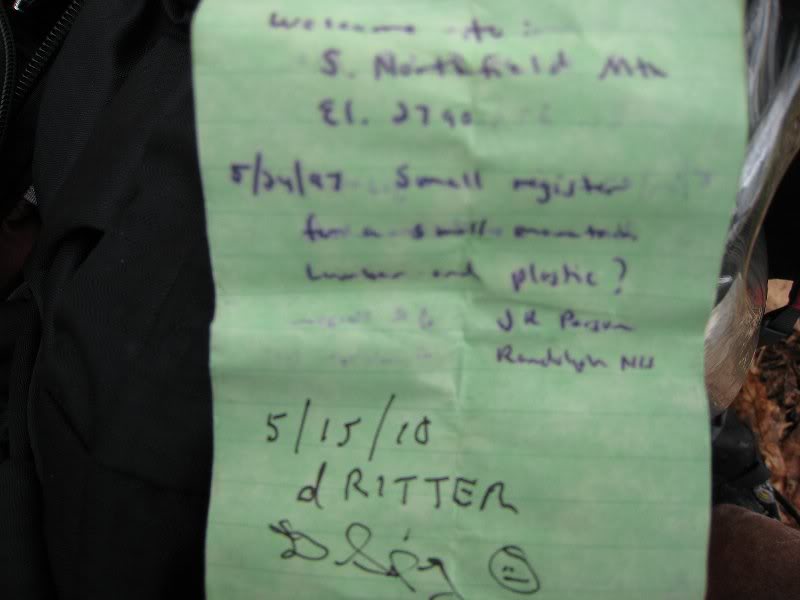 Welcome to
S. Northfield Mtn
El. 2790
5/24/97 Small register
for a small mountain,
lumber and plastic?
J R
Randolph NH
5/15/10
d RITTER